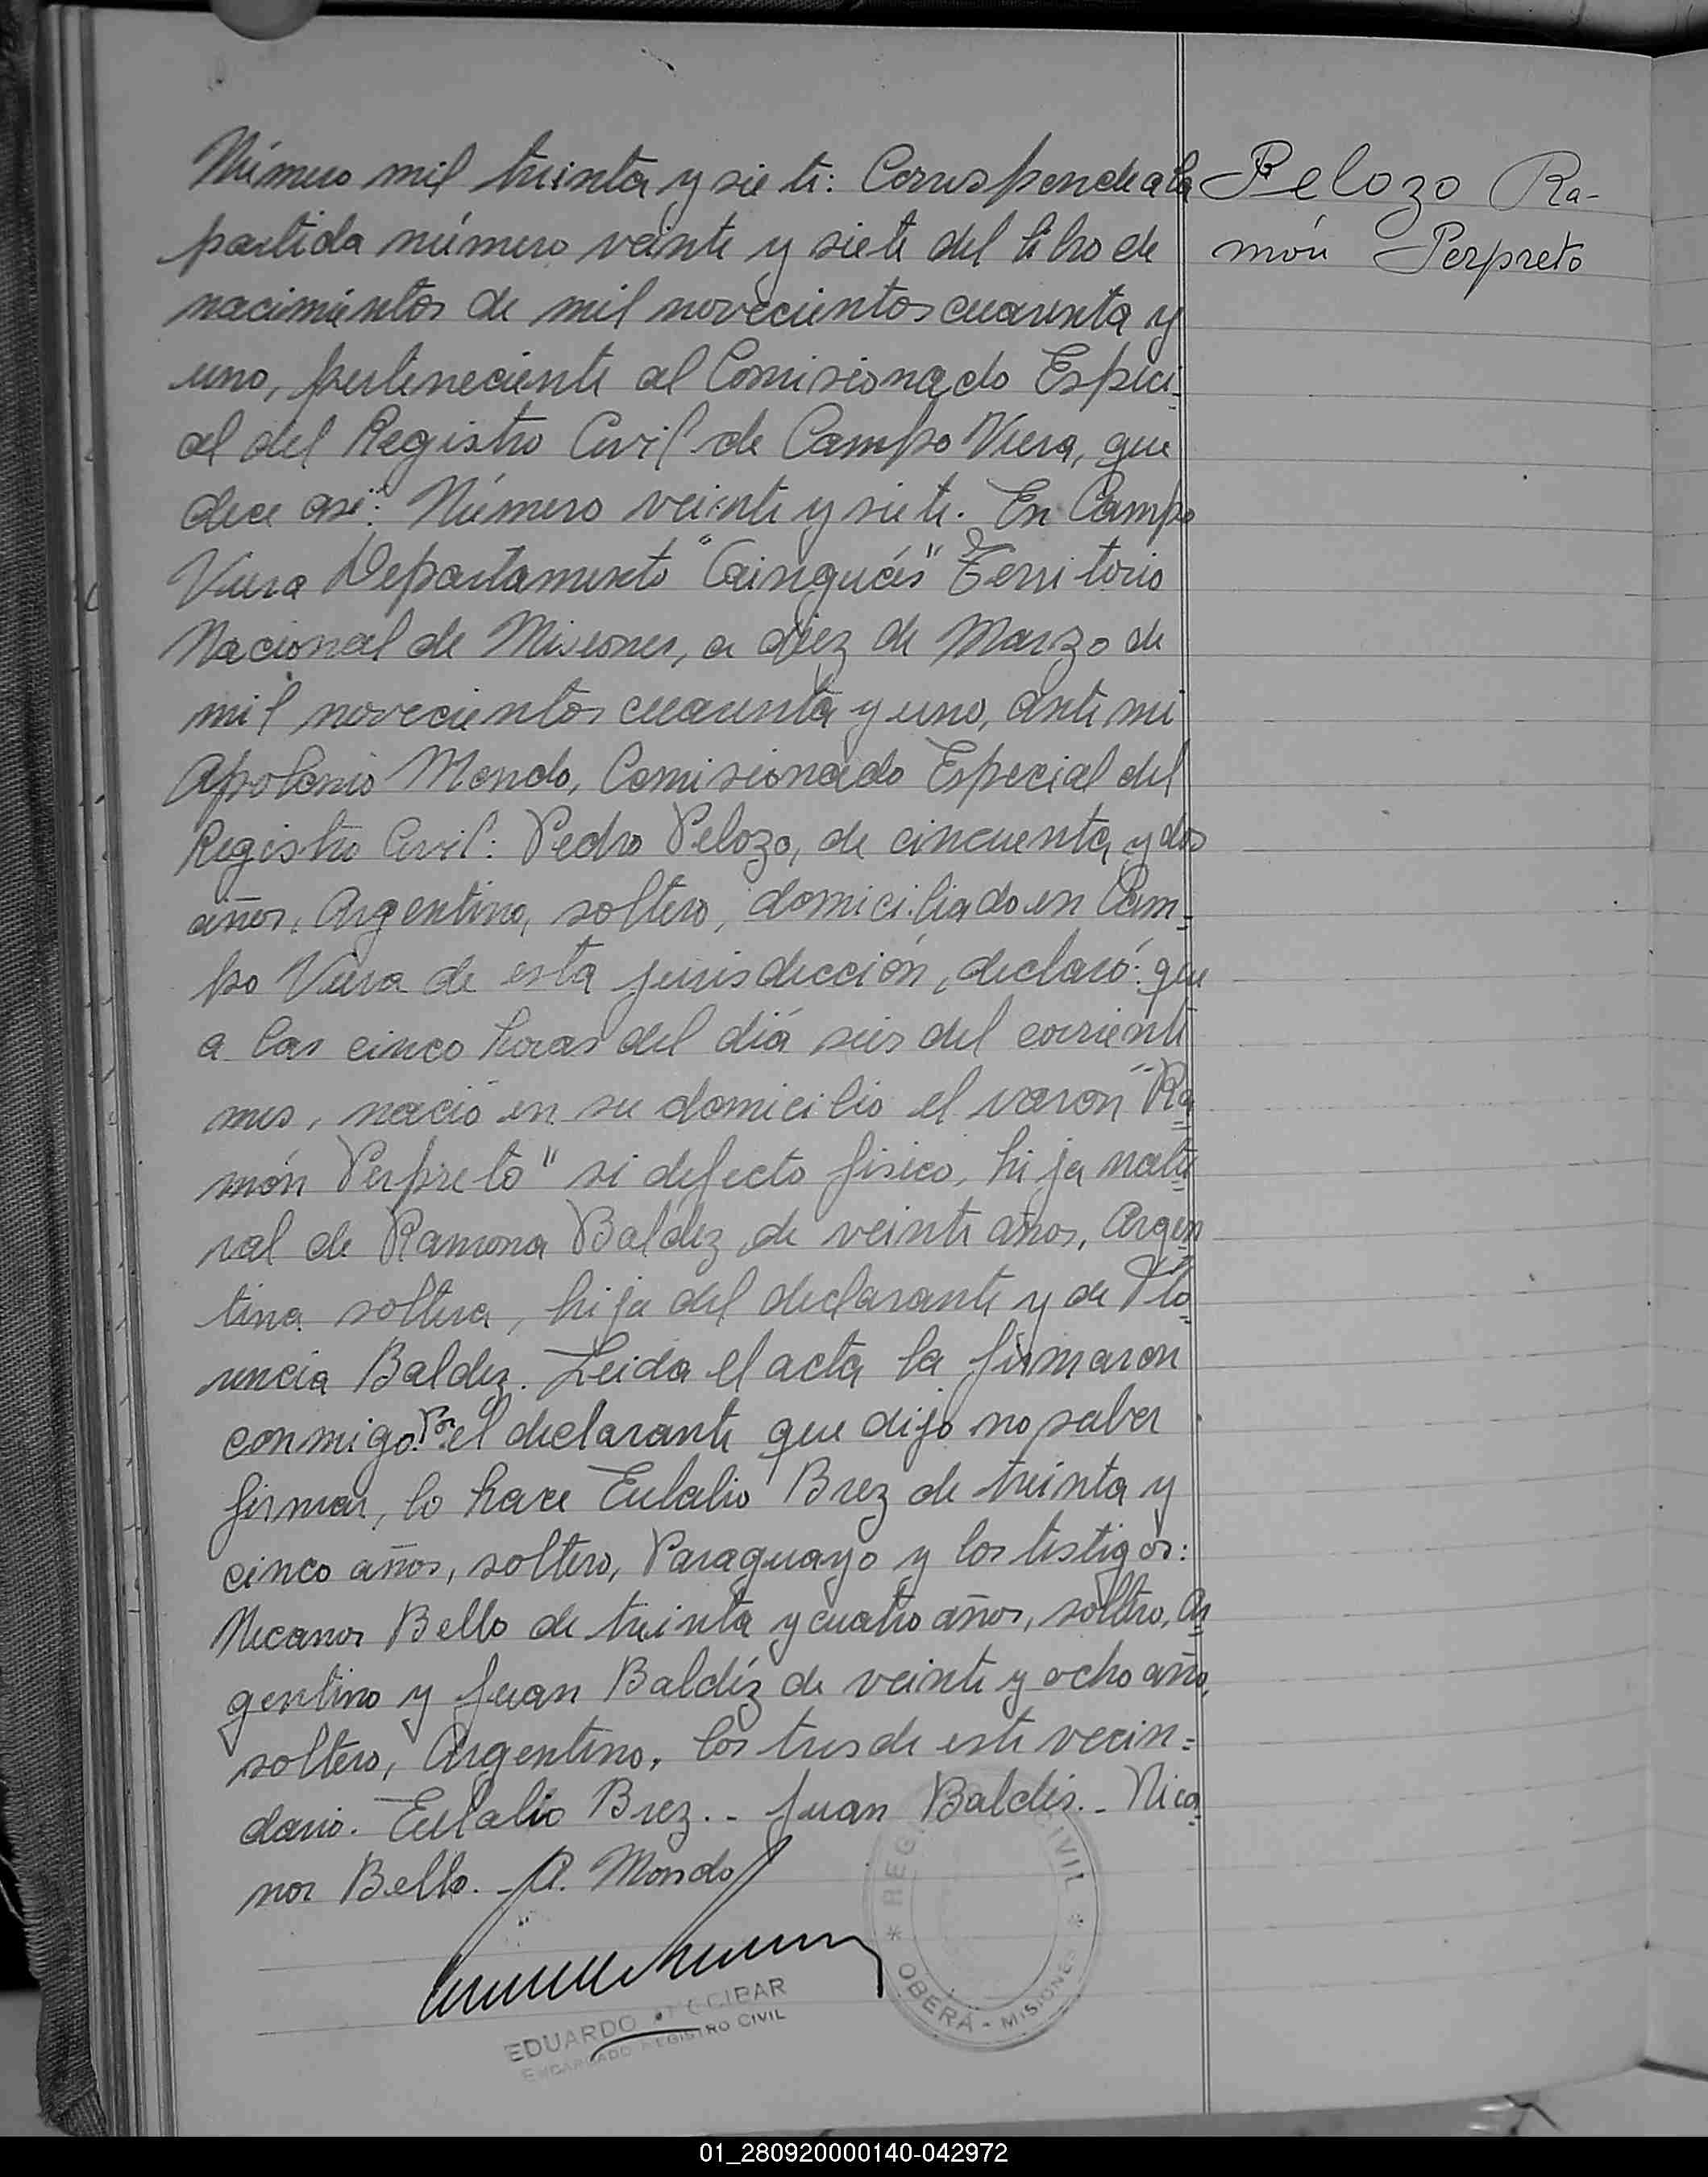 Número mil treinta y siete: Corresponde a la
partida número veinte y siete del libro de
nacimientos de mil novecientos cuarenta y
uno, perteneciente al Comisionado Especi-
al del Registro Civil de Campo Viera, que
dece asi: Número veinte y siete. En Campo
Viera Departamento "Cainguás" Territorio
Nacional de Misiones, a diez de Marzo de
mil novecientos cuarenta y uno, ante mi
Apolonio Mondo, Comisionado Especial del
Registro Civil: Pedro Pelozo, de cincuenta y dos
años, Argentino, soltero, domiciliado en Cam=
po Viera de esta jurisdicción, declaró: que
a las cinco horas del día seis del corriente
mes, nació en su domicilio el varon "Ra
món Perpreto" si defecto fisico, hija natu
ral de Ramona Baldez de veinte años, Argen
tina soltera, hija del declarante y de Flo
rencia Baldez. Leida el acta la firmaron
conmigo. Por el declarante que dijo no saber
firmar, lo hace Eulalio Brez de treinta y
cinco años, soltero, Paraguayo y los testigos:
Necanor Bello de treinta y cuatro años, soltero, Ar
gentino y Juan Baldéz de veinte y ocho años,
soltero, Argentino, los tres de este vecin=
dario. Eulalio Brez.- Juan Baldés.- Nica
nor Bello.- A. Mondo
Pelozo Ra-
món Perpreto
EDUARDO
ENCARGADO REGISTRO CIVIL
REG CIVIL
* OBERÁ - MISIONES *
01_280920000140-042972